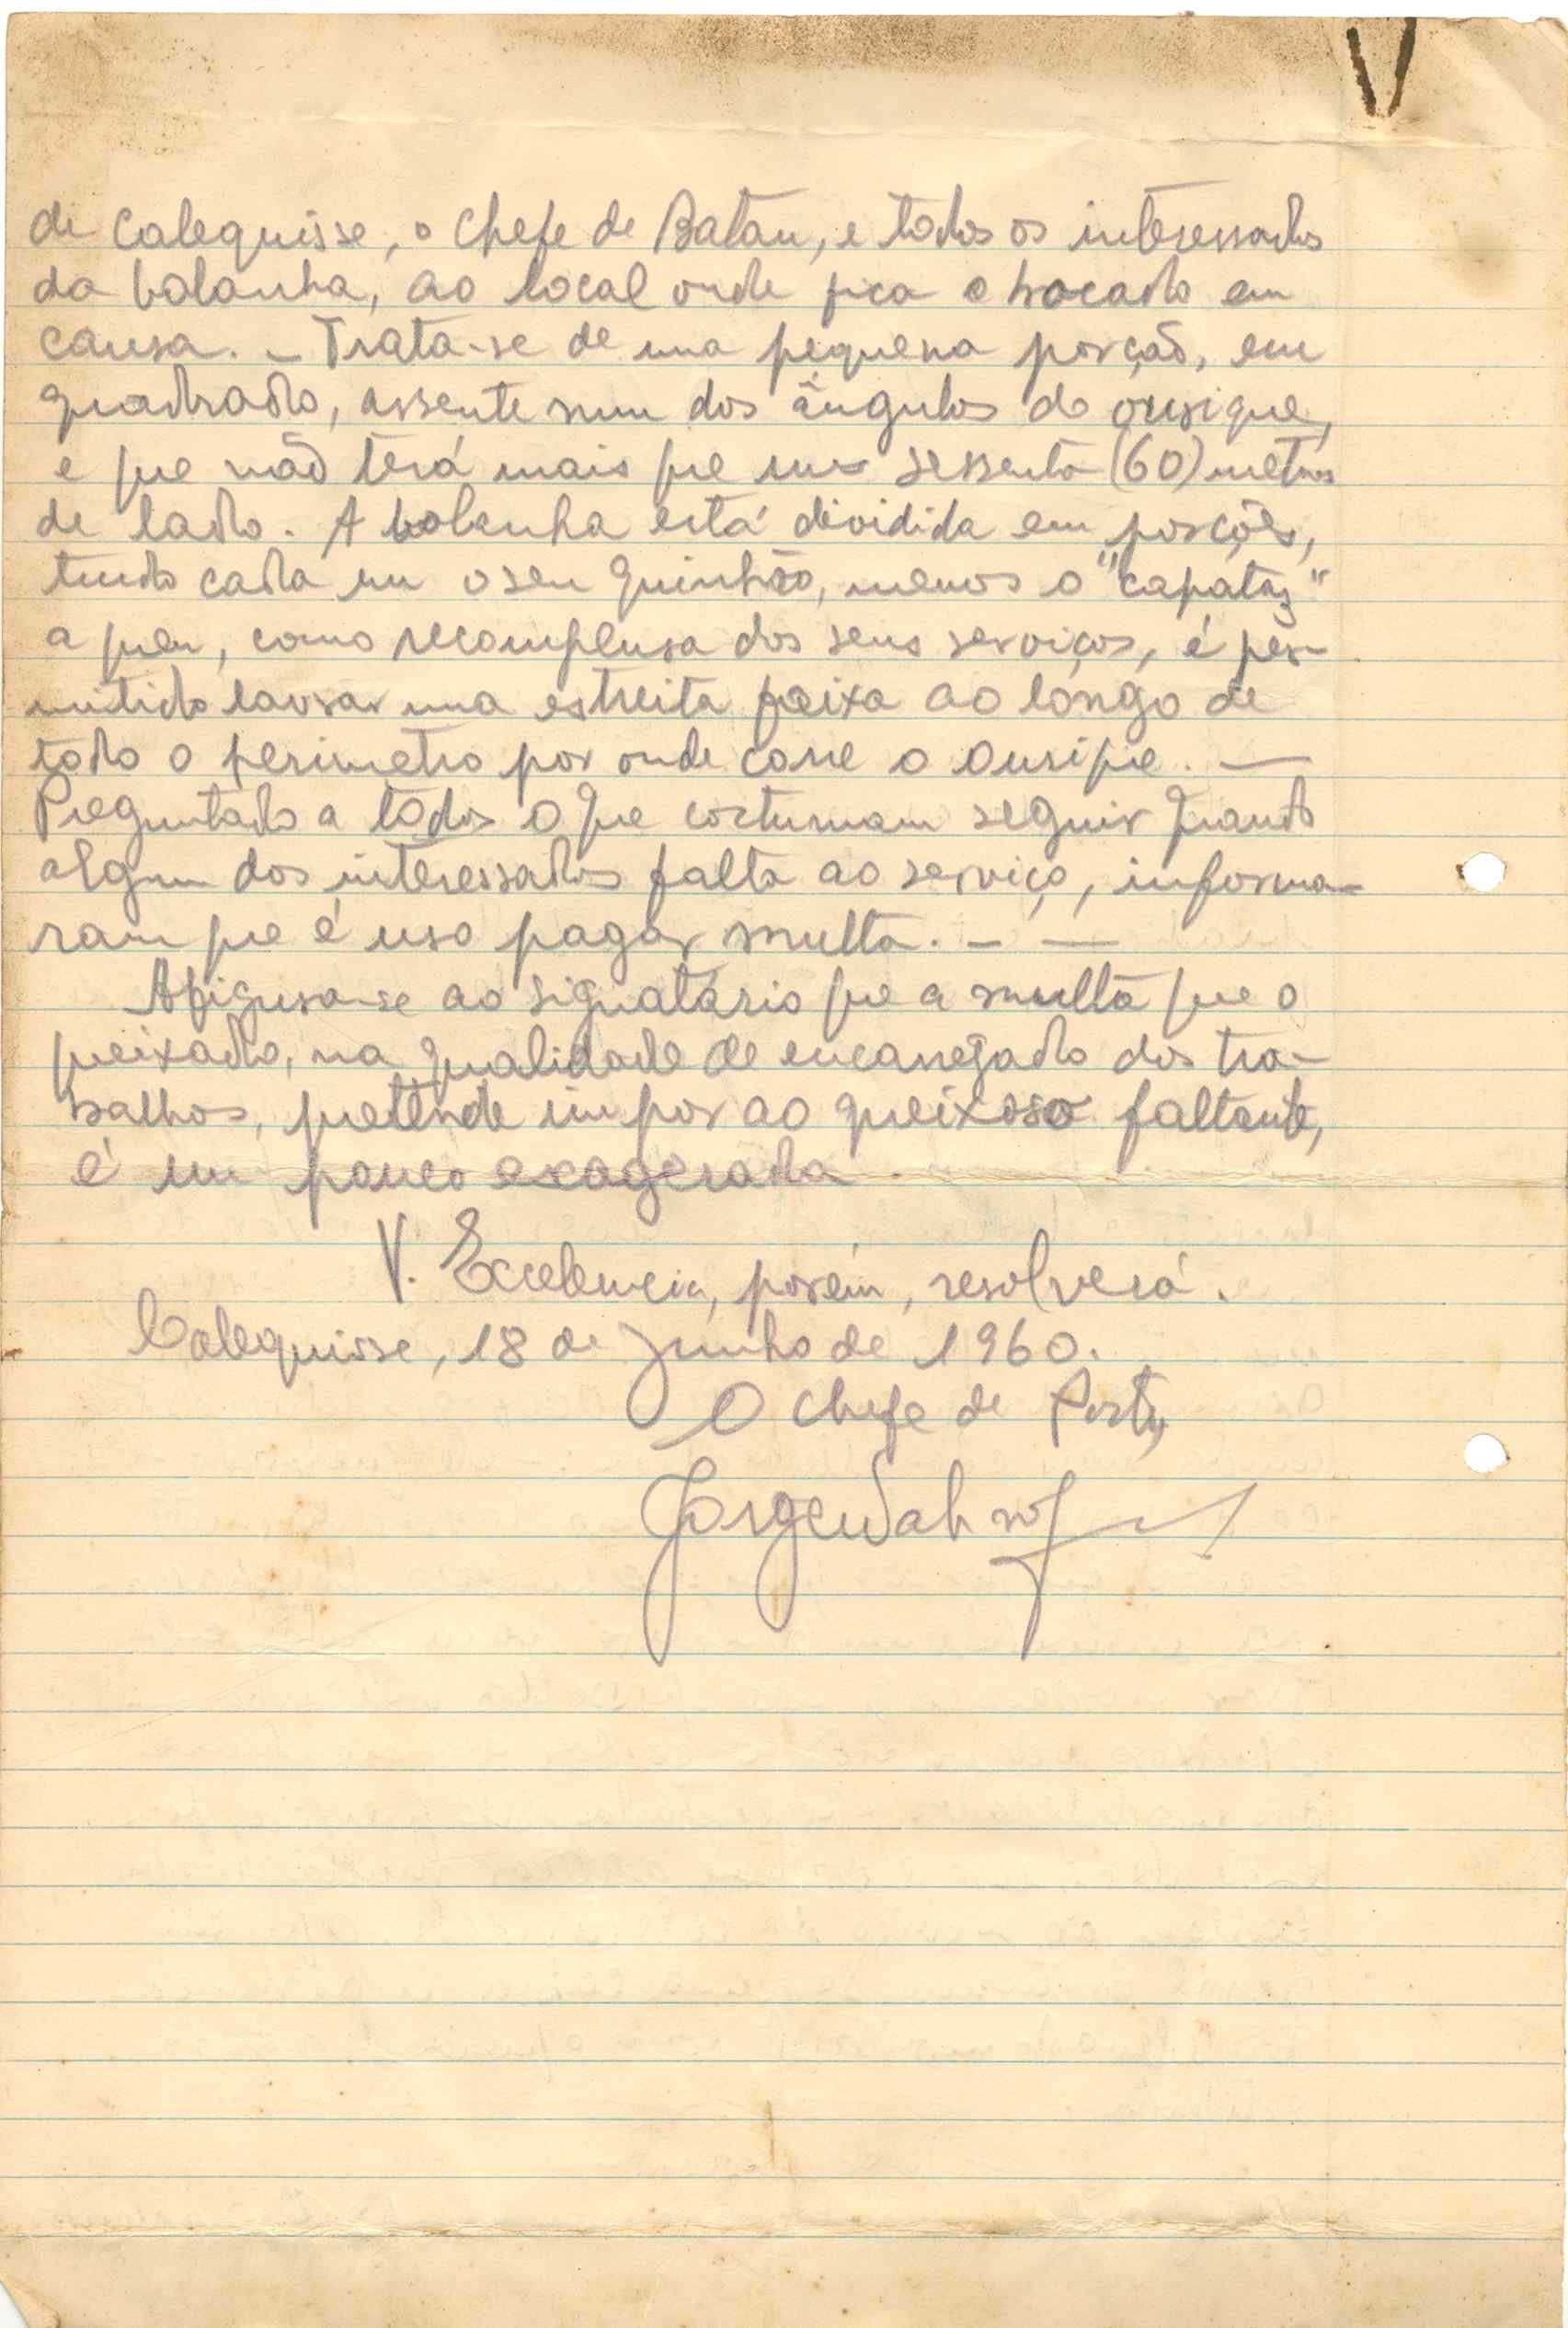 de Calequisse, o Chefe de Batau, e todos os interessados
da bolanha, ao local onde fica o bocado em
causa. - Trata-se de uma pequena porção, em
quadrado, assente num dos ângulos do ourique,
e que não terá mais que uns sessenta (60) metros
de lado. A bolanha está dividida em porções,
tendo cada um o seu quinhão, menos o "capataz"
a quem, como recompensa dos seus serviços, é per-
mitido lavrar uma estreita faixa ao longo de
todo o perimetro por onde corre o ourique. —
Preguntado a todos o que costumam seguir quando
algum dos interessados falta ao serviço, informa-
ram que é uso pagar multa. - —
Afigura-se ao signatário que a multa que o
queixado, na qualidade de encarregado dos tra-
balhos, pretende impor ao queixoso faltante,
é um pouco exagerada.
V. Excelencia, porém, resolverá.
Calequisse, 18 de Junho de 1960.
O Chefe de Posto,
Jorge